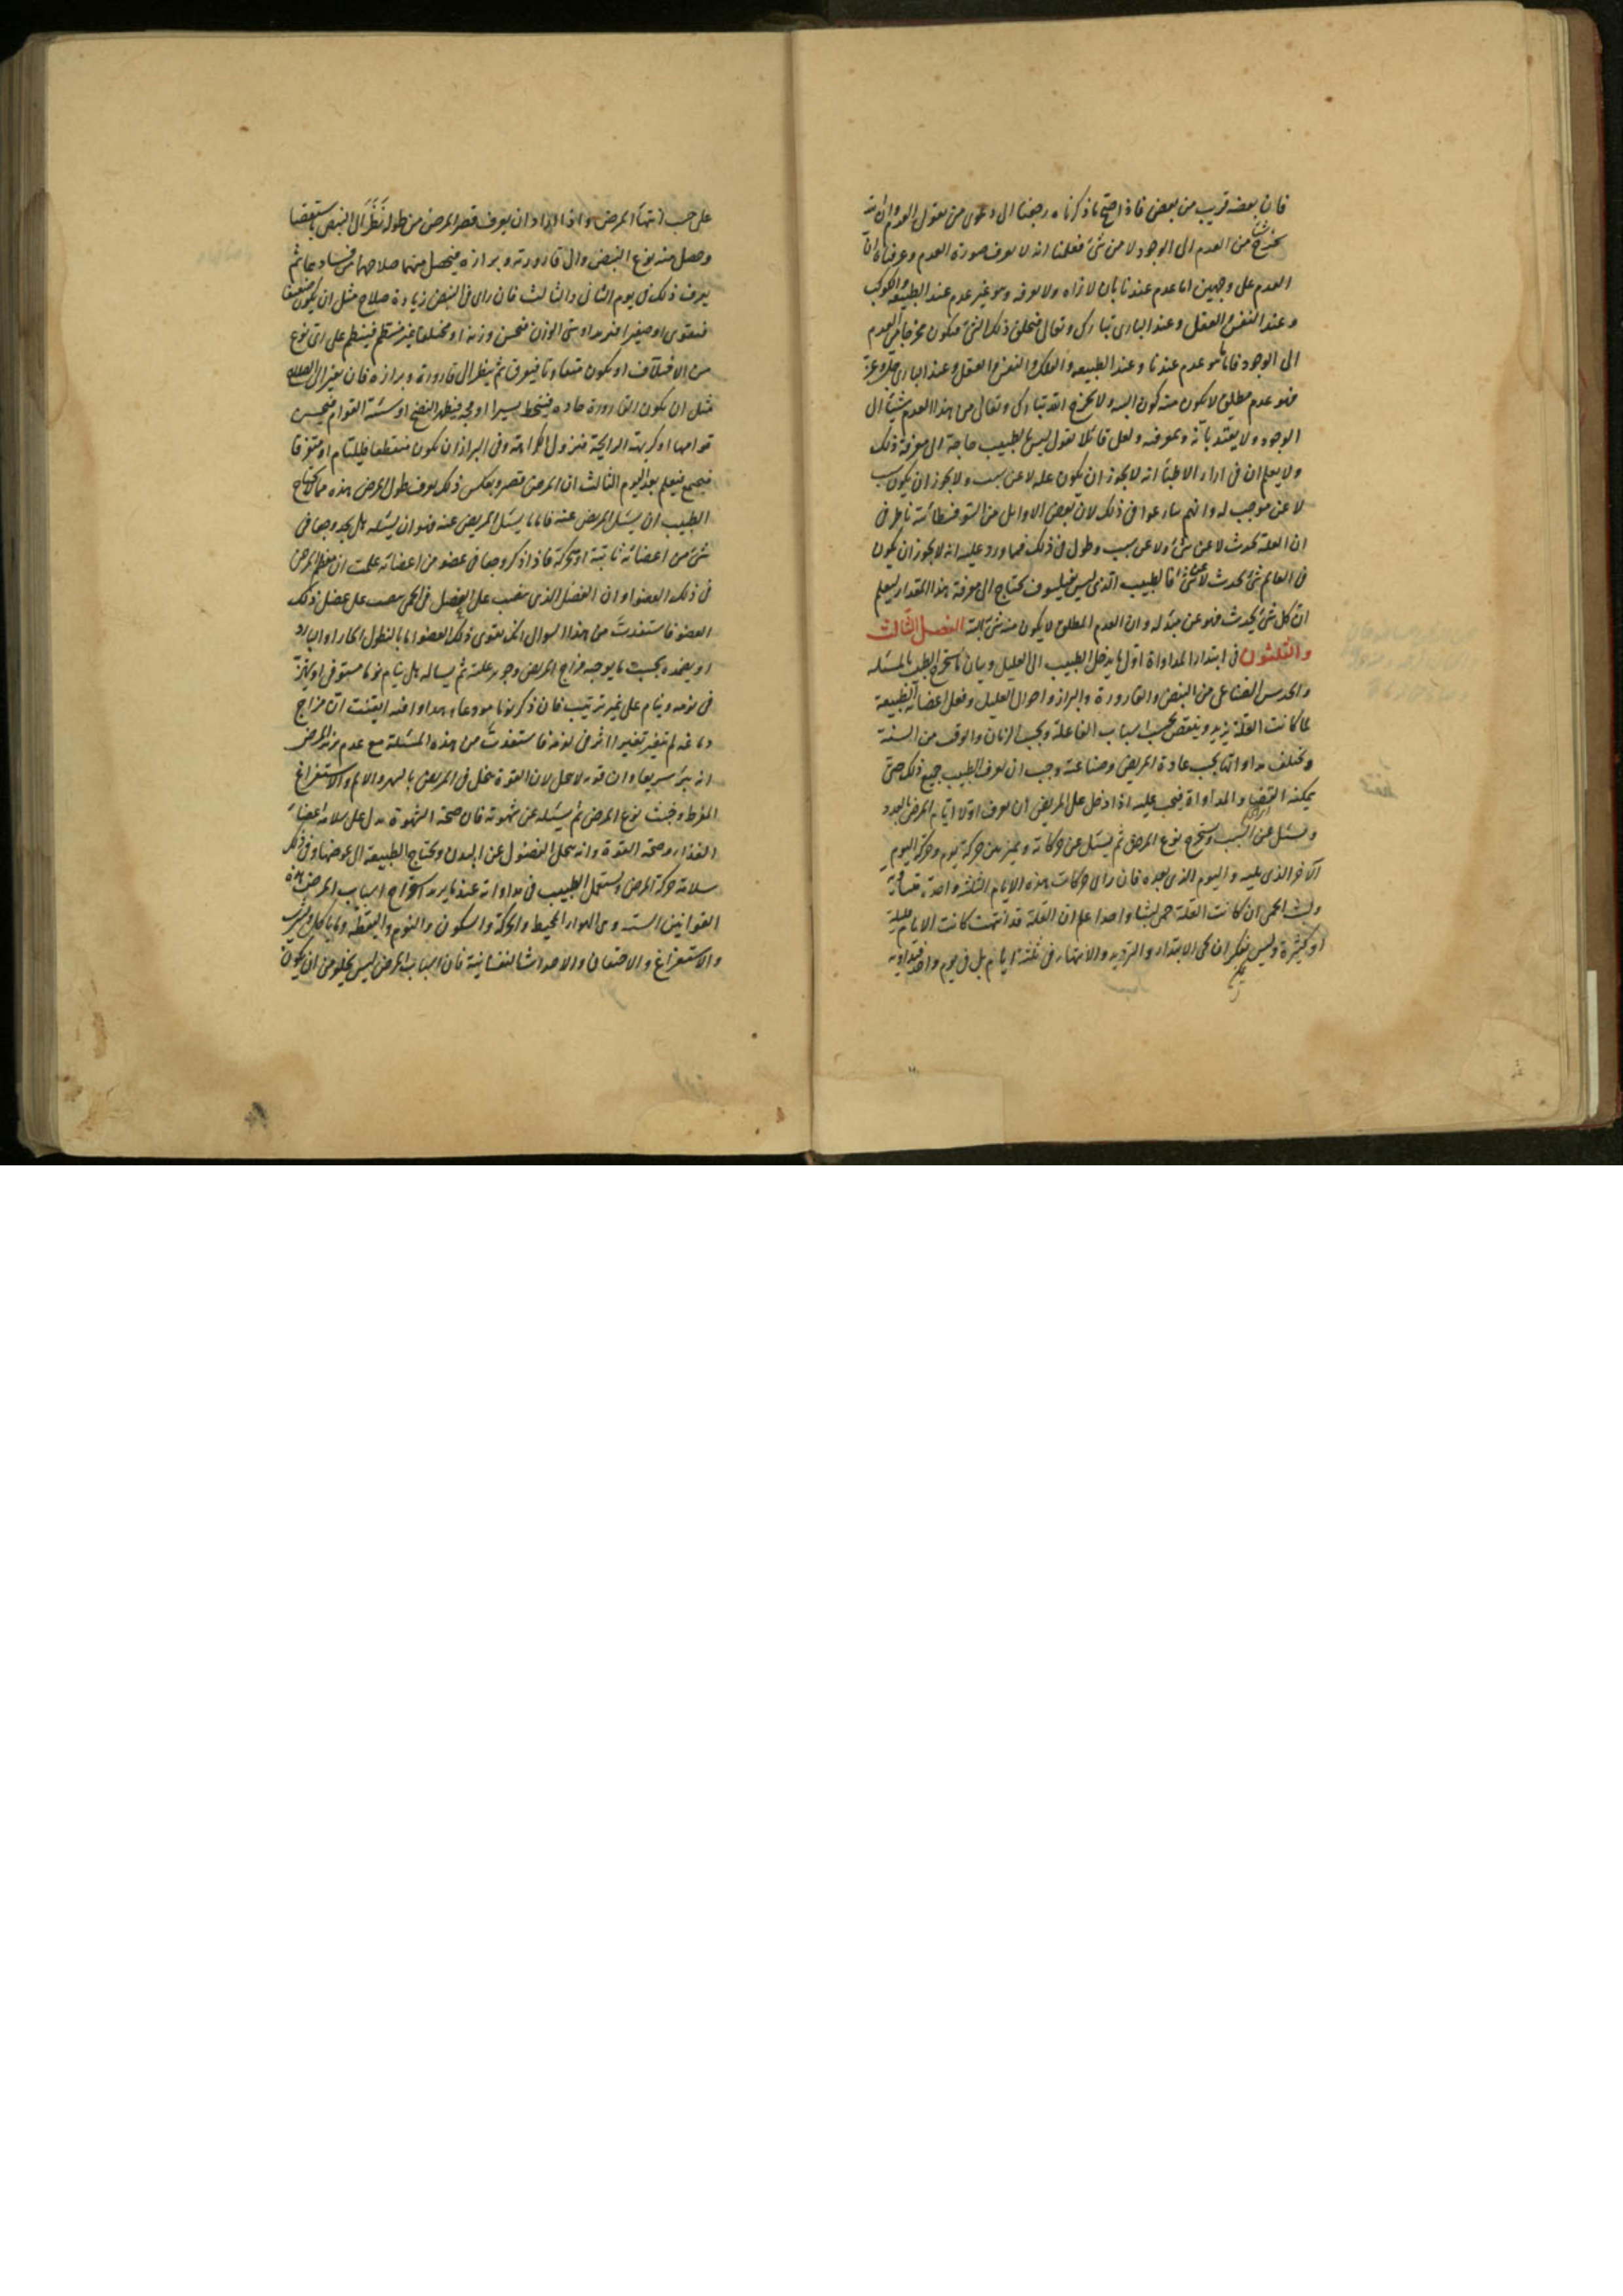 فان بعضه قريب من بعض فاذا احتج بما ذكرناه رجعنا الى دعوى من يقول العدم وان الله
يخرج شيئا من العدم الى الوجود لا من شئ فعلمنا انه لا يعرف صورة العدم وعرفناه ان
العدم على وجهين اما عدم عندنا بان لا نراه ولا نعرفه وهو غير عدم عند الطبيعة والكواكب
وعند النفس والعقل وعند البارى تبارك وتعالى فيخلق ذلك الشئ فيكون مخرجا من العدم
الى الوجود فاما هو عدم عندنا وعند الطبيعه والفلك والنفس والعقل وعند البارى جل وعز
فهو عدم مطلق لا يكون منه كون البته ولا يخرج الله تبارك وتعالى من هذا العدم شيئا الى
الوجود ولا يعتد بانه وبمعرفته ولعل قائلا يقول ليس بالطبيب حاجة الى معرفة ذلك
ولا يعلم ان فى اراء الاطبّاء انه لا يجوز ان يكون علة لا عن سبب ولا يجوز ان يكون سبب
لا عن موجب له وانهم نازعوا فى ذلك لان بعض الاوايل من السوفسطائية ناظر فى
ان العلة تحدث لا عن شئ ولا عن سبب وطول فى ذلك فمما ورد عليه انه لا يجوز ان يكون
فى العالم شئ يحدث لا عن شئ فالطبيب الذى ليس بفيلسوف يحتاج الى معرفة هذا المقدار ليعلم
ان كل شئ يحدث فهو عن مبدء له وان العدم المطلق لا يكون منه شئ البتة الفصل الثالث
والثلثون فى ابتداء المداواة اول ما يدخل الطبيب الى العليل وبيان ما يستخرج الطبيب بالمسئله
والحدس الصناعى من النبض والقارورة والبراز واحوال العليل وفعل اعضائه الطبيعة
لما كانت العلة يزيد وينقص بحسب اسباب الفاعلة وبحسب الزمان والوقت من السنة
وتختلف مداواتها بحسب عادة المريض وصناعته وجب ان يعرف الطبيب جميع ذلك حتى
يمكنه القضاء والمداواة فيجب عليه اذا دخل على المريض ان يعرف اولا ايام المرض بالعدد
ويسئل عن السبب ويستخرج نوع المرض ثم يسئل عن حركاته ويميز بين حركة يوم وحركة اليوم
الاخر الذى يليه واليوم الذى بعده فان راى حركات هذه الايام الثلثة واحدة متساوية
ولبث الحمى ان كانت العلة حمى لبثا واحدا علم ان العلة قد انتهت كانت الايام قليلة
او كثيرة وليس ينكر ان يكون الابتداء والتزيد والانتهاء فى ثلثة ايام بل فى يوم واحد فيداويه
على حسب انتهاء المرض واذا اراد ان يعرف قصر المرض من طوله نظر الى النبض باستقصا
وحصل منه نوع النبض والى قارورته وبرازه فيحصل منهما صلاحهما من فسادهما ثم
يعرف ذلك فى يوم الثانى والثالث فان راى فى النبض زيادة صلاح مثل ان يكون ضعيفا
فيقوى او صغيرا فيزداد او سئ الوزن فيحسن وزنه او مختلفا غير منتظم فينتظم على اى نوع
من الاختلاف او يكون متفاوتا فيفرق ثم ينظر الى قارورة وبرازه فان تغير الى الصلاح
مثل ان يكون القارورة حاده فينحط يسيرا او فجه فيظهر النضج او سيئة القوام فيحسن
قوامها او كريهة الرايحة فيزول الكراهة وفى البراز ان يكون منقطعا فيلتئم او متفرقا
فيجتمع فيعلم بعد اليوم الثالث ان المرض قصير وبعكس ذلك يعرف طول المرض هذه مما لا يحتاج
الطبيب ان يسئل المريض عنه فاما ما يسئل المريض عنه فهو ان يسئله هل يجد وجعا فى
شئ من اعضائه ثابتة او بحركة فاذا ذكر وجعا فى عضو من اعضائه علمت ان معظم المرض
فى ذلك العضو او ان الفضل الذى ينصب على المفصل فى الحمى ينصب على عضل ذلك
العضو فاستفدت من هذا السوال انك تقوى ذلك العضو اما بالنطول الحار او البارد
او بضمده بحسب ما يوجبه مزاج المريض وجوهر علته ثم يساله هل ينام نوما مستوفى او يفزع
فى نومه وينام على غير ترتيب فان ذكر نوما مودعا هادوا فيه ايقنت ان مزاج
دماغه لم يتغير تغييرا اثر فى نومه فاستفدت من هذه المسئلة مع عدم مزاج المرض
انه يبرء سريعا وان قوته لا تحل لان القوة تنحل فى المريض بالسهر والالم والاستفراغ
المفرط وخبث نوع المرض ثم يسئله عن شهوته فان صحة الشهوة يدل على سلامة اعضاء
الغذاء وصحة القوة وانه تحلل الفضول عن البدن وتحتاج الطبيعة الى عوضها وفى ذلك
سلامة حركة المرض ويستعمل الطبيب فى مداواته عند ما يريد استخراج اسباب المرض هذه
القوانين الستة وهى الهواء المحيط والحركة والسكون والنوم واليقظه وما ياكل ويشرب
والاستفراغ والاحتقان والاحداث النفسانية فان اسباب المرض ليس يخلو من ان يكون